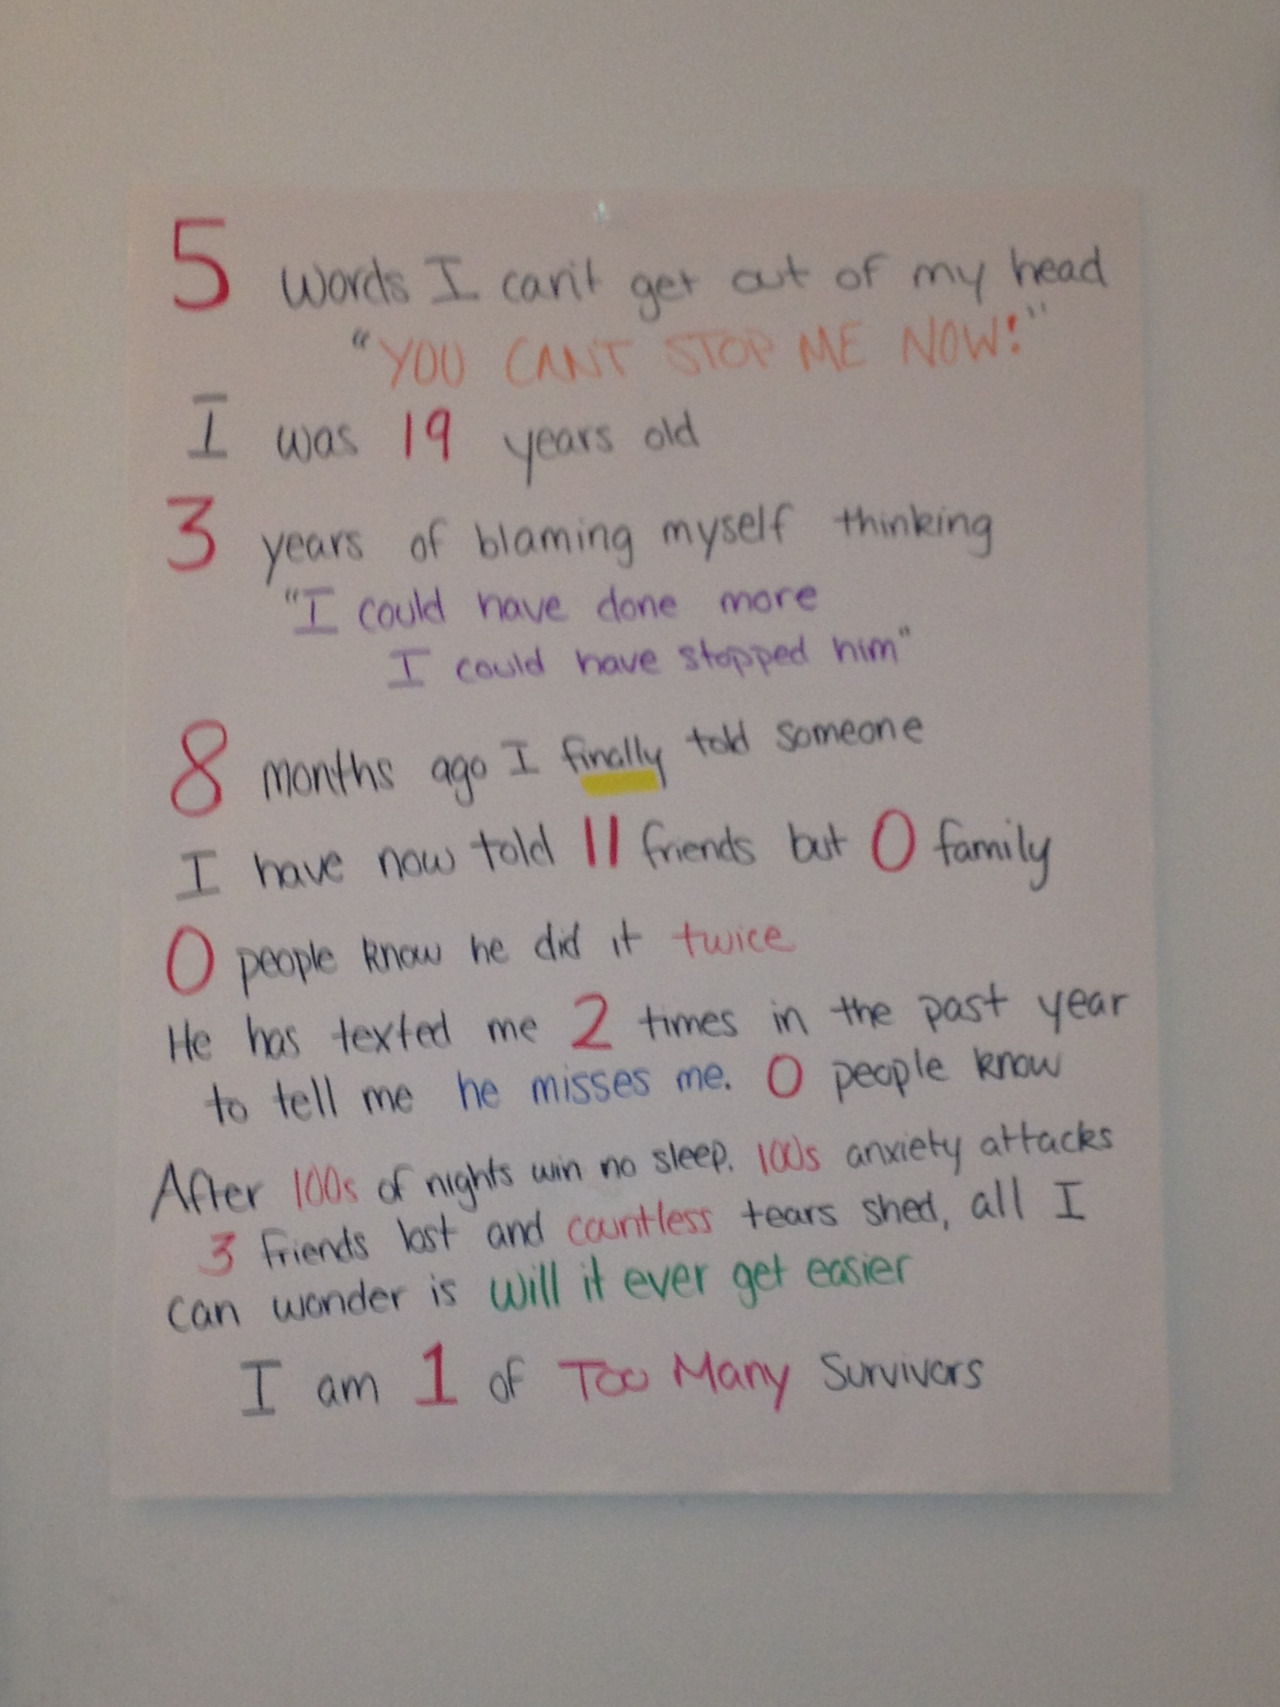 5 words I can't get out of my head
"YOU CANT STOP ME NOW!"
I was 19 years old
3 years of blaming myself thinking
"I could have done more
I could have stopped him"
8 months ago I finally told someone
I have now told 11 friends but 0 family
0 people know he did it twice
He has texted me 2 times in the past year
to tell me he misses me. 0 people know
After 100s of nights win no sleep. 100s anxiety attacks
3 friends lost and countless tears shed, all I
can wonder is will it ever get easier
I am 1 of Too Many Survivors